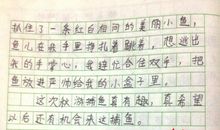 抓住了一条红白相间的美丽小鱼，
鱼儿在我手里挣扎着跳着，想逃出
我的手掌心，我连忙合住双手，把
鱼放进严帅给我的小盒子里。
这次秋游捕鱼真有趣，真希望
以后还有机会来这捕鱼。